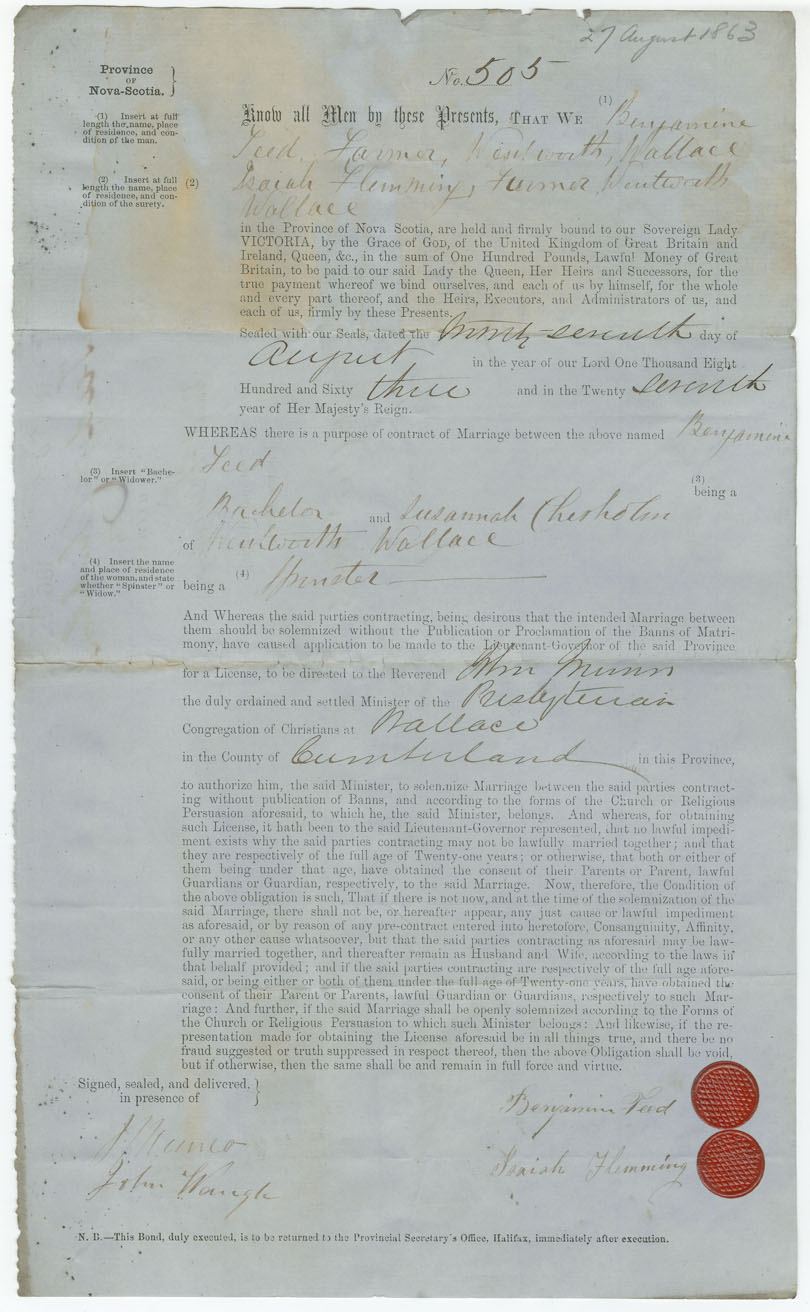 27 August 1863
Province
OF
Nova-Scotia.
No. 505
(1) Insert at full
length the name, place
of residence, and con-
dition of the man.
Know all Men by these Presents, THAT WE (1) Benjamine
Teed, Farmer, Wentworth, Wallace
(2) Insert at full
length the name, place
of residence, and con-
dition of the surety.
(2) Isaiah Flemming, Farmer Wentworth
Wallace
in the Province of Nova Scotia, are held and firmly bound to our Sovereign Lady
VICTORIA, by the Grace of GOD, of the United Kingdom of Great Britain and
Ireland, Queen, &c., in the sum of One Hundred Pounds, Lawful Money of Great
Britain, to be paid to our said Lady the Queen, Her Heirs and Successors, for the
true payment whereof we bind ourselves, and each of us by himself, for the whole
and every part thereof, and the Heirs, Executors, and Administrators of us, and
each of us, firmly by these Presents.
Sealed with our Seals, dated the seventh day of
August in the year of our Lord One Thousand Eight
Hundred and Sixty three and in the Twenty seventh
year of Her Majesty's Reign.
WHEREAS there is a purpose of contract of Marriage between the above named Benjamine
Teed
(3) Insert "Bache-
lor" or "Widower."
(3)
being a
Bachelor and Susannah Chesholm
of Wentworth Wallace
(4) Insert the name
and place of residence
of the woman, and state
whether "Spinster" or
"Widow."
being a (4) Spinster
And Whereas the said parties contracting, being desirous that the intended Marriage between
them should be solemnized without the Publication or Proclamation of the Banns of Matri-
mony, have caused application to be made to the Lieutenant-Governor of the said Province
for a License, to be directed to the Reverend John Munro
the duly ordained and settled Minister of the Presbyterian
Congregation of Christians at Wallace
in the County of Cumberland in this Province,
to authorize him, the said Minister, to solemnize Marriage between the said parties contract-
ing without publication of Banns, and according to the forms of the Church or Religious
Persuasion aforesaid, to which he, the said Minister, belongs. And whereas, for obtaining
such License, it hath been to the said Lieutenant-Governor represented, that no lawful impedi-
ment exists why the said parties contracting may not be lawfully married together; and that
they are respectively of the full age of Twenty-one years; or otherwise, that both or either of
them being under that age, have obtained the consent of their Parents or Parent, lawful
Guardians or Guardian, respectively, to the said Marriage. Now, therefore, the Condition of
the above obligation is such, That if there is not now, and at the time of the solemnization of the
said Marriage, there shall not be, or hereafter appear, any just cause or lawful impediment
as aforesaid, or by reason of any pre-contract entered into heretofore, Consanguinity, Affinity,
or any other cause whatsoever, but that the said parties contracting as aforesaid may be law-
fully married together, and thereafter remain as Husband and Wife, according to the laws in
that behalf provided; and if the said parties contracting are respectively of the full age afore-
said, or being either or both of them under the full age of Twenty-one years, have obtained the
consent of their Parent or Parents, lawful Guardian or Guardians, respectively to such Mar-
riage: And further, if the said Marriage shall be openly solemnized according to the Forms of
the Church or Religious Persuasion to which such Minister belongs: And likewise, if the re-
presentation made for obtaining the License aforesaid be in all things true, and there be no
fraud suggested or truth suppressed in respect thereof, then the above Obligation shall be void,
but if otherwise, then the same shall be and remain in full force and virtue.
Signed, sealed, and delivered,
in presence of
Benjamin Teed
J Munro
Isaiah Flemming
John Waugh
N. B.—This Bond, duly executed, is to be returned to the Provincial Secretary's Office, Halifax, immediately after execution.